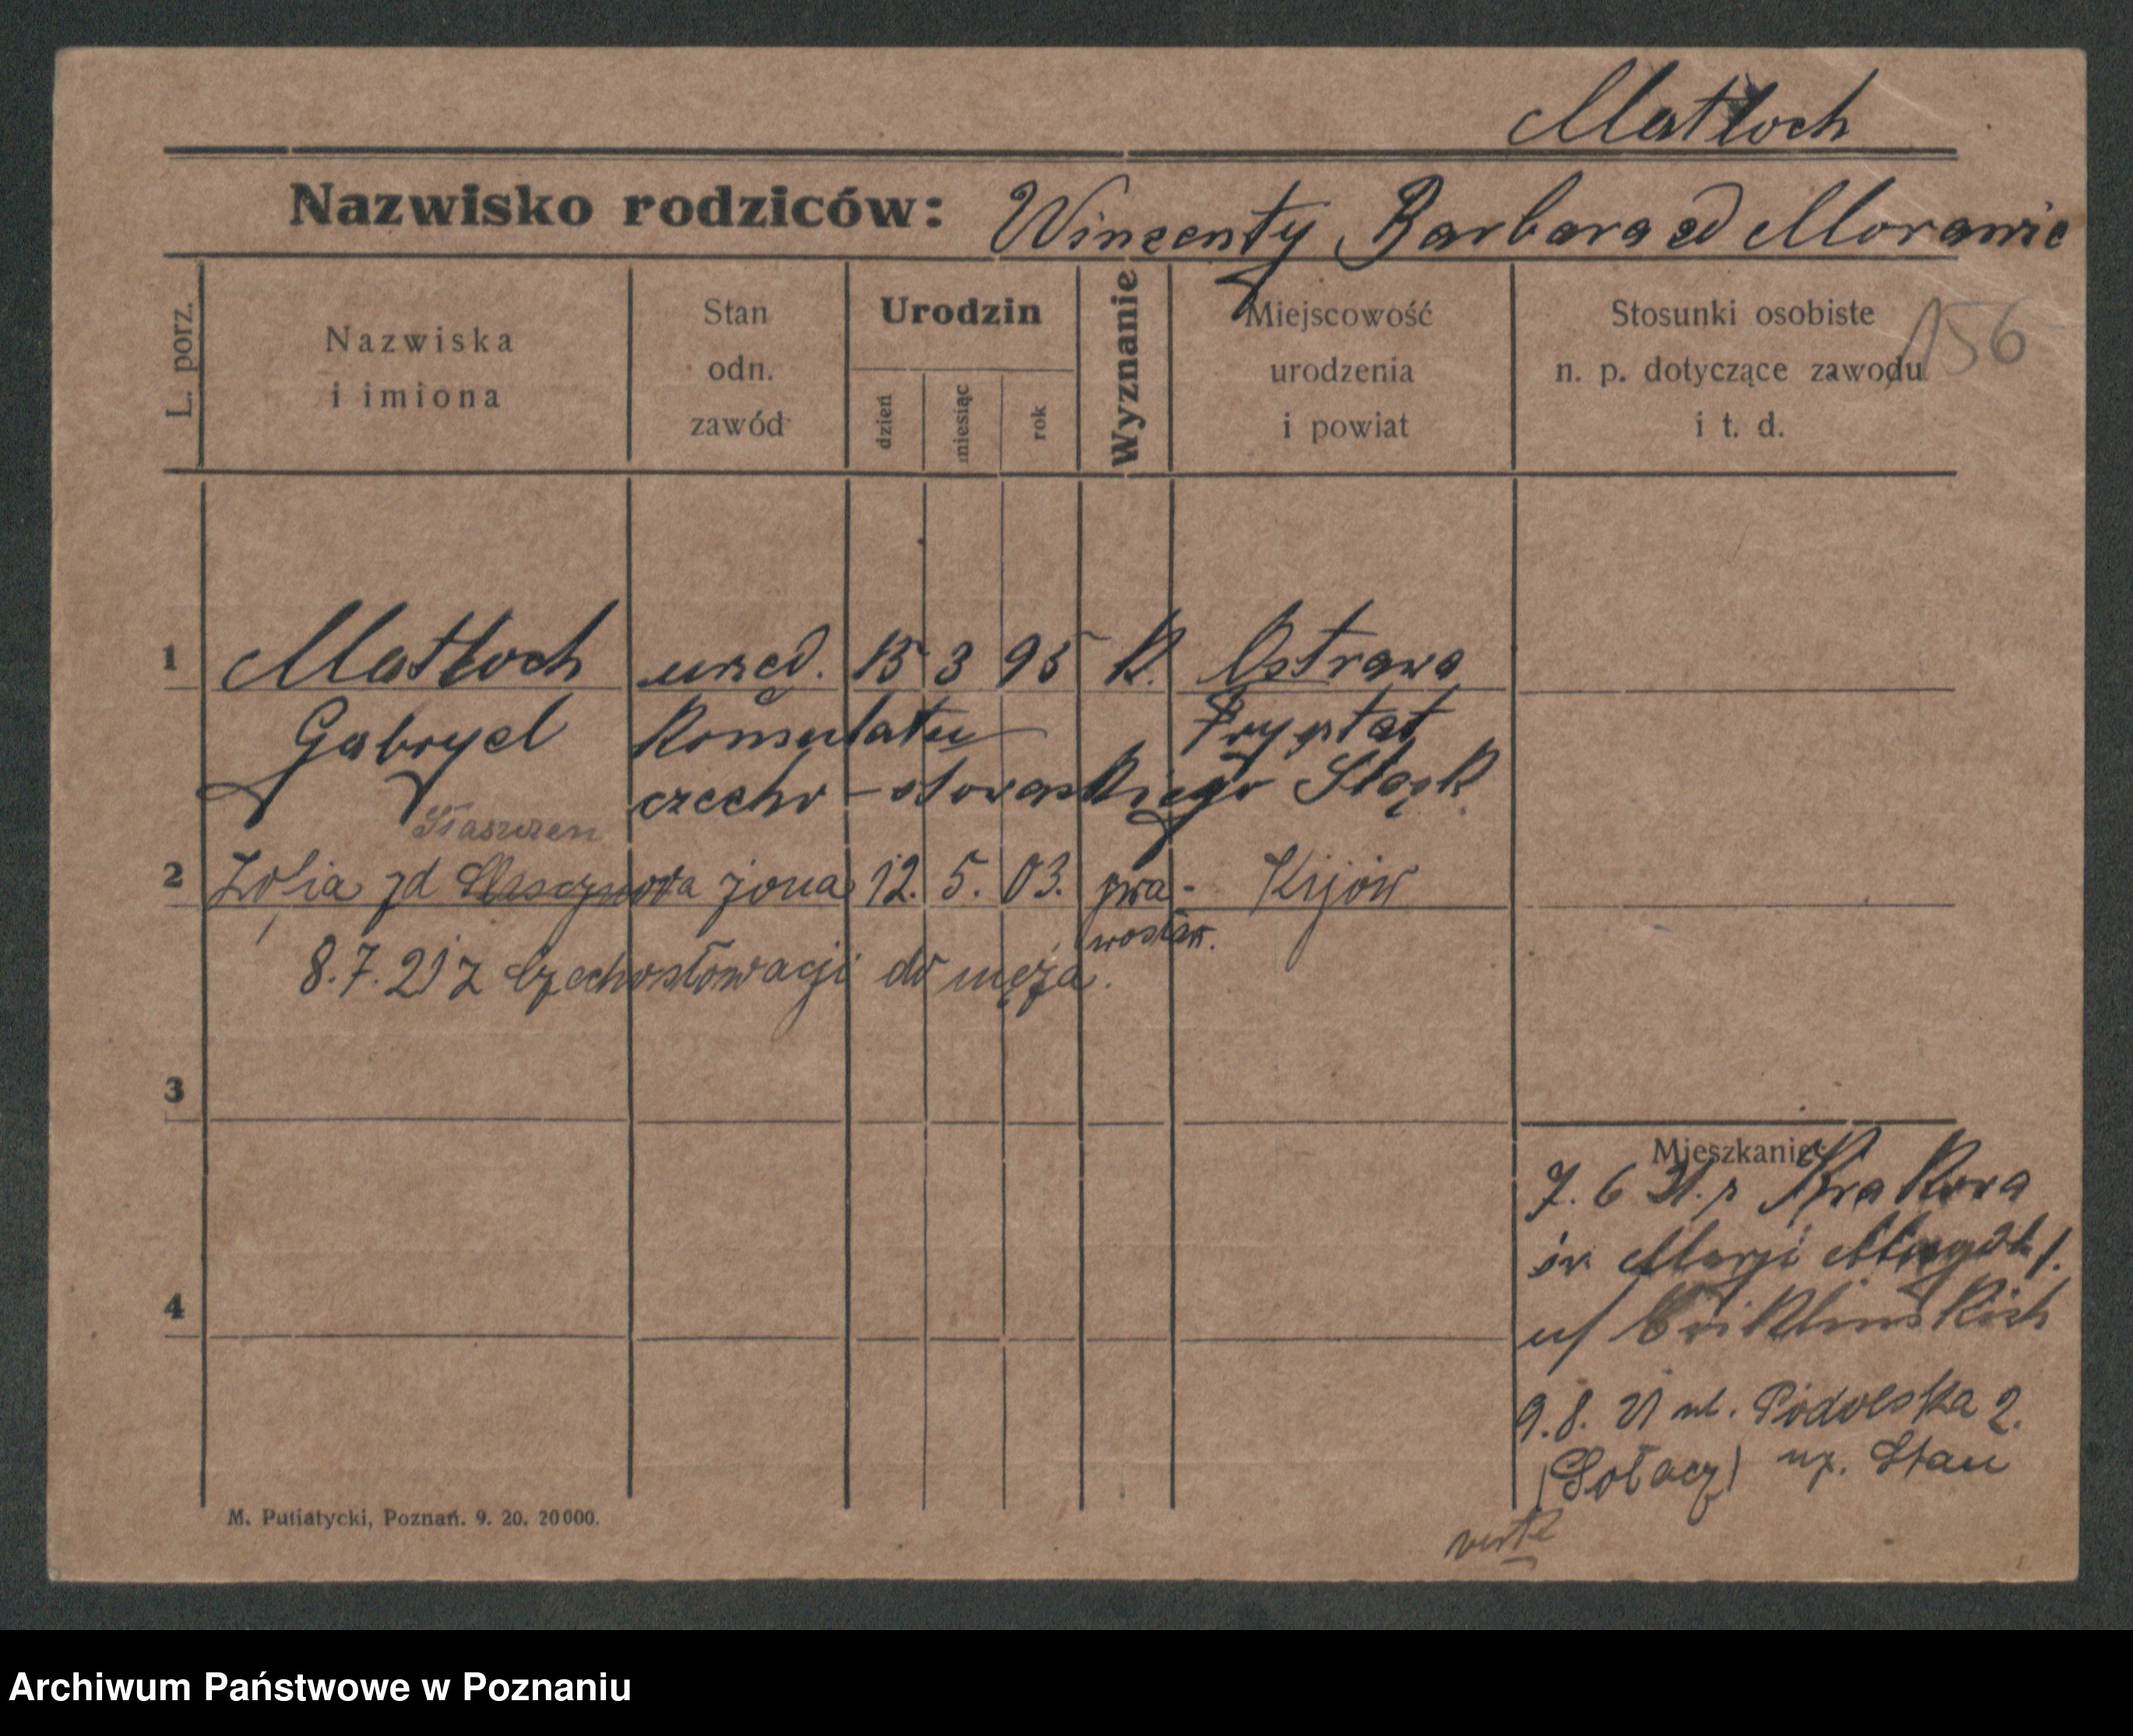 Matłoch
Nazwisko rodziców: Wincenty Barbara zd Morawie
L. porz.
Nazwiska
i imiona
Stan
odn.
zawód
Urodzin
dzień
miesiąc
rok
Wyznanie
Miejscowość
urodzenia
i powiat
Stosunki osobiste
n. p. dotyczące zawodu
i t. d.
156
1 Matłoch urzęd. 15 3 95 K. Ostrawa
Gabryel Konsulatu Frysztat
czecho-słowaskiego Sląsk
2 Zofia zd żona 12. 5. 03. pra- Kijów
wosław.
8.7.21 z Czechosłowacji do męża.
3
4
Mieszkanie
7. 6 21. z Krakowa
św. Marji Magdl 1.
u/
9. 8. 21 ul. Podolska 2.
(Sołacz) np. Stau
verte
M. Putiatycki, Poznań. 9. 20. 20000.
Archiwum Państwowe w Poznaniu